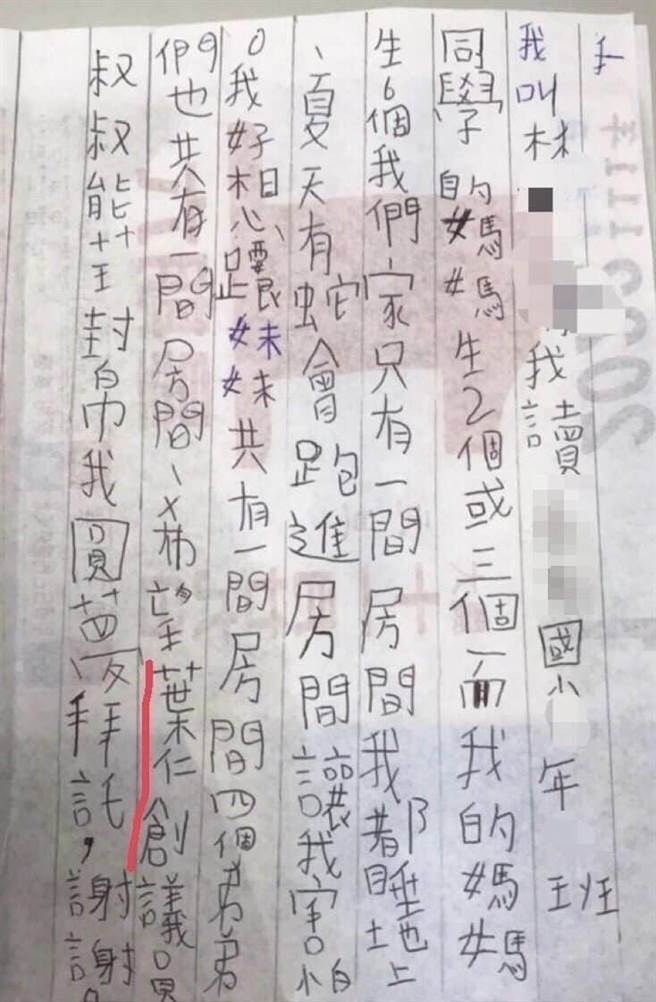 我叫林 我讀 國小 年 班
同學的媽媽生2個或三個而我的媽媽
生6個我們家只有一間房間我都睡地上
、夏天有蛇會跑進房間讓我害怕
。我好想跟妹妹共有一間房間四個弟弟
們也共有一間房間、希望葉仁創議員
叔叔能幫我圓夢拜託,謝謝。